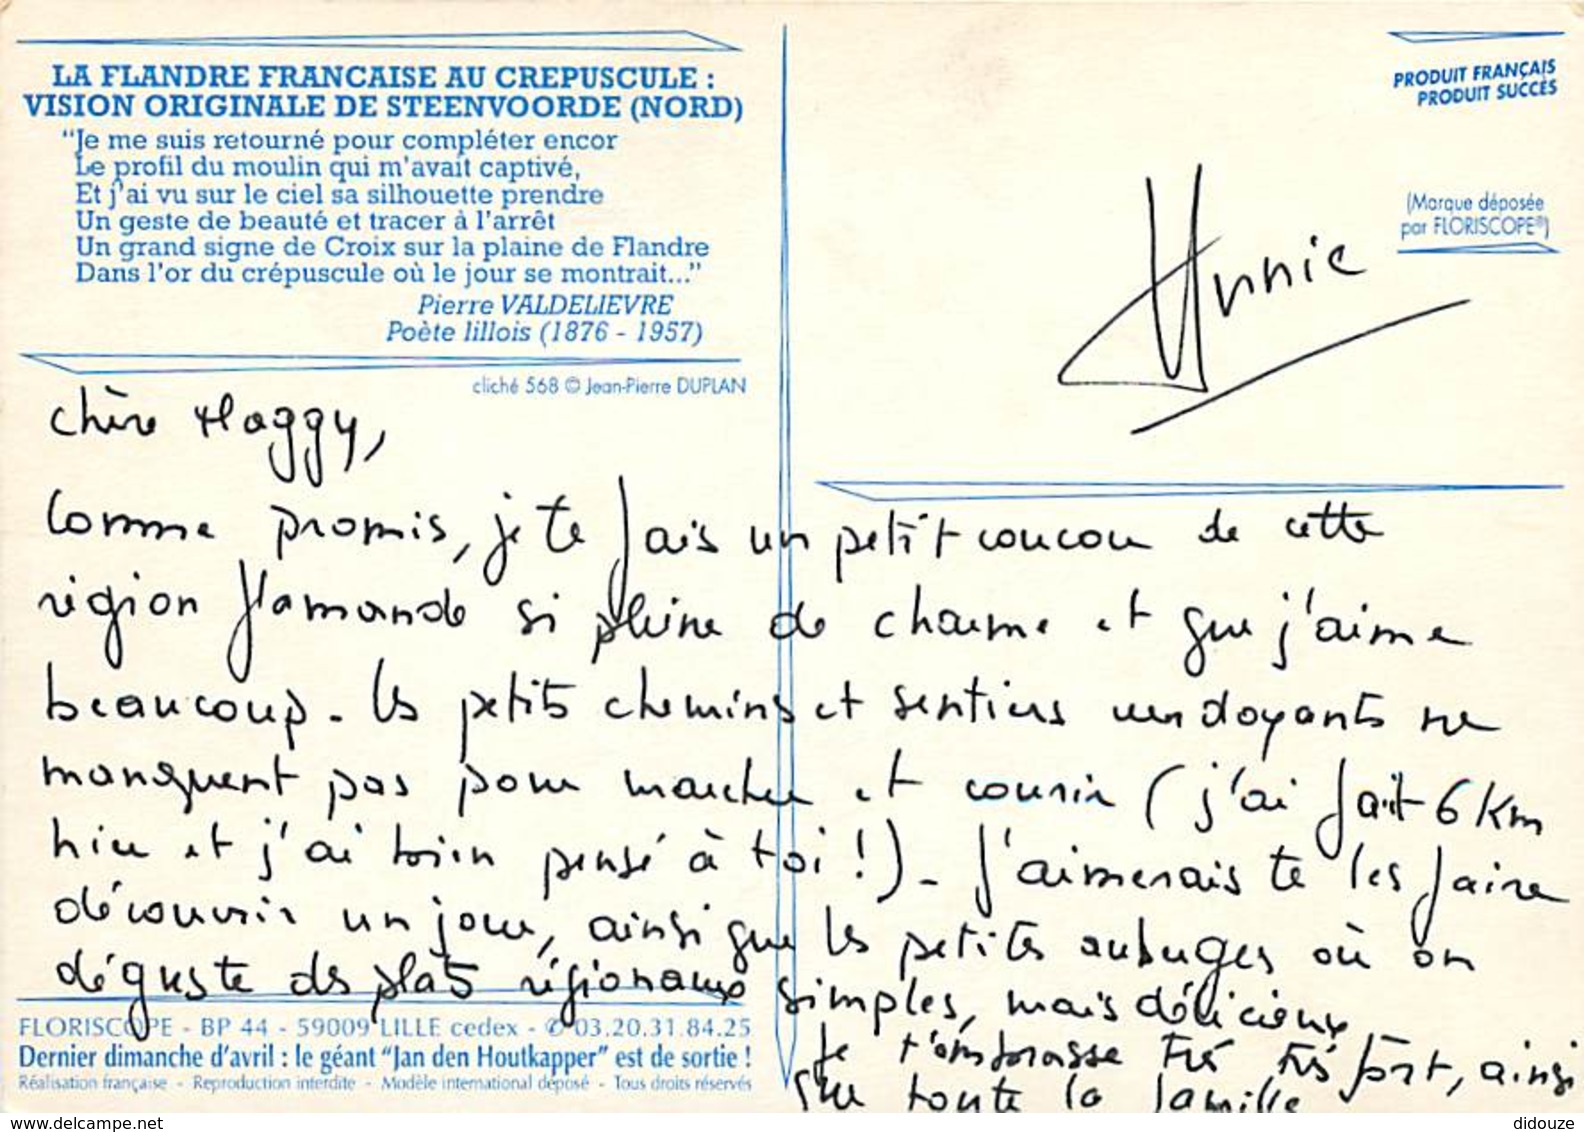 LA FLANDRE FRANCAISE AU CREPUSCULE :
VISION ORIGINALE DE STEENVOORDE (NORD)
"Je me suis retourné pour compléter encor
Le profil du moulin qui m'avait captivé,
Et j'ai vu sur le ciel sa silhouette prendre
Un geste de beauté et tracer à l'arrêt
Un grand signe de Croix sur la plaine de Flandre
Dans l'or du crépuscule où le jour se montrait..."
Pierre VALDELIEVRE
Poète lillois (1876 - 1957)
cliché 568 © Jean-Pierre DUPLAN
PRODUIT FRANÇAIS
PRODUIT SUCCÈS
(Marque déposée
par FLORISCOPE®)
Annie
Chère Maggy,
Comme promis, je te fais un petit coucou de cette
région flamande si pleine de charme et que j'aime
beaucoup. Les petits chemins et sentiers verdoyants ne
manquent pas pour marcher et courir (j'ai fait 6 Km
hier et j'ai bien pensé à toi !). J'aimerais te les faire
découvrir un jour, ainsi que les petites auberges où on
déguste des plats régionaux simples, mais délicieux
Je t'embrasse très très fort, ainsi
que toute la famille
FLORISCOPE - BP 44 - 59009 LILLE cedex - ✆ 03.20.31.84.25
Dernier dimanche d'avril : le géant "Jan den Houtkapper" est de sortie !
Réalisation française - Reproduction interdite - Modèle international déposé - Tous droits réservés
didouze